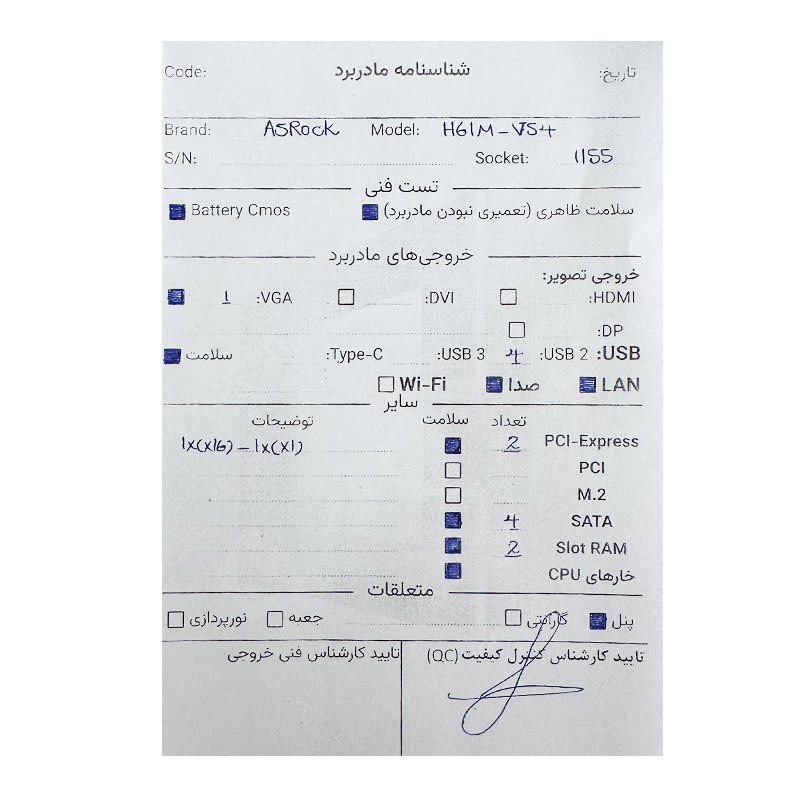 شناسنامه مادربرد
تاریخ:
Code:
Brand: ASRock Model: H61M-VS4
S/N: Socket: 1155
تست فنی
سلامت ظاهری (تعمیری نبودن مادربرد) Battery Cmos
خروجی‌های مادربرد
خروجی تصویر:
HDMI: DVI: VGA: 1
DP:
USB: USB 2: 4 USB 3: Type-C: سلامت
LAN صدا Wi-Fi
سایر
تعداد سلامت توضیحات
PCI-Express 2 1x(x16) - 1x(x1)
PCI
M.2
SATA 4
Slot RAM 2
خارهای CPU
متعلقات
پنل گارانتی جعبه نورپردازی
تایید کارشناس کنترل کیفیت (QC) تایید کارشناس فنی خروجی